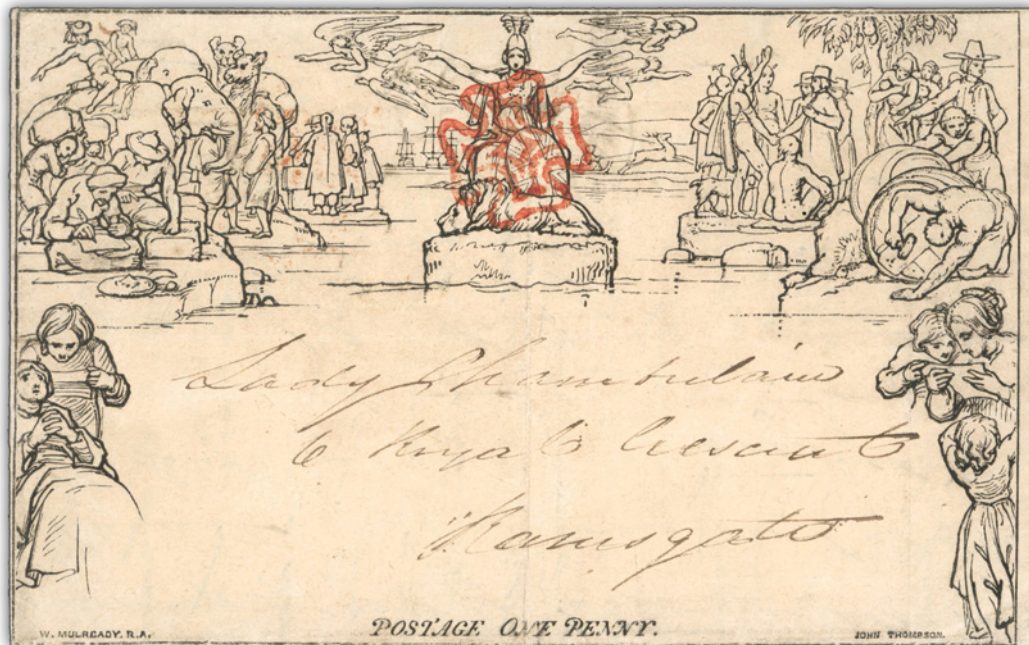 Lady Chamberlain
6 Royal Crescent
Ramsgate
W. MULREADY. R.A.
POSTAGE ONE PENNY.
JOHN THOMPSON.